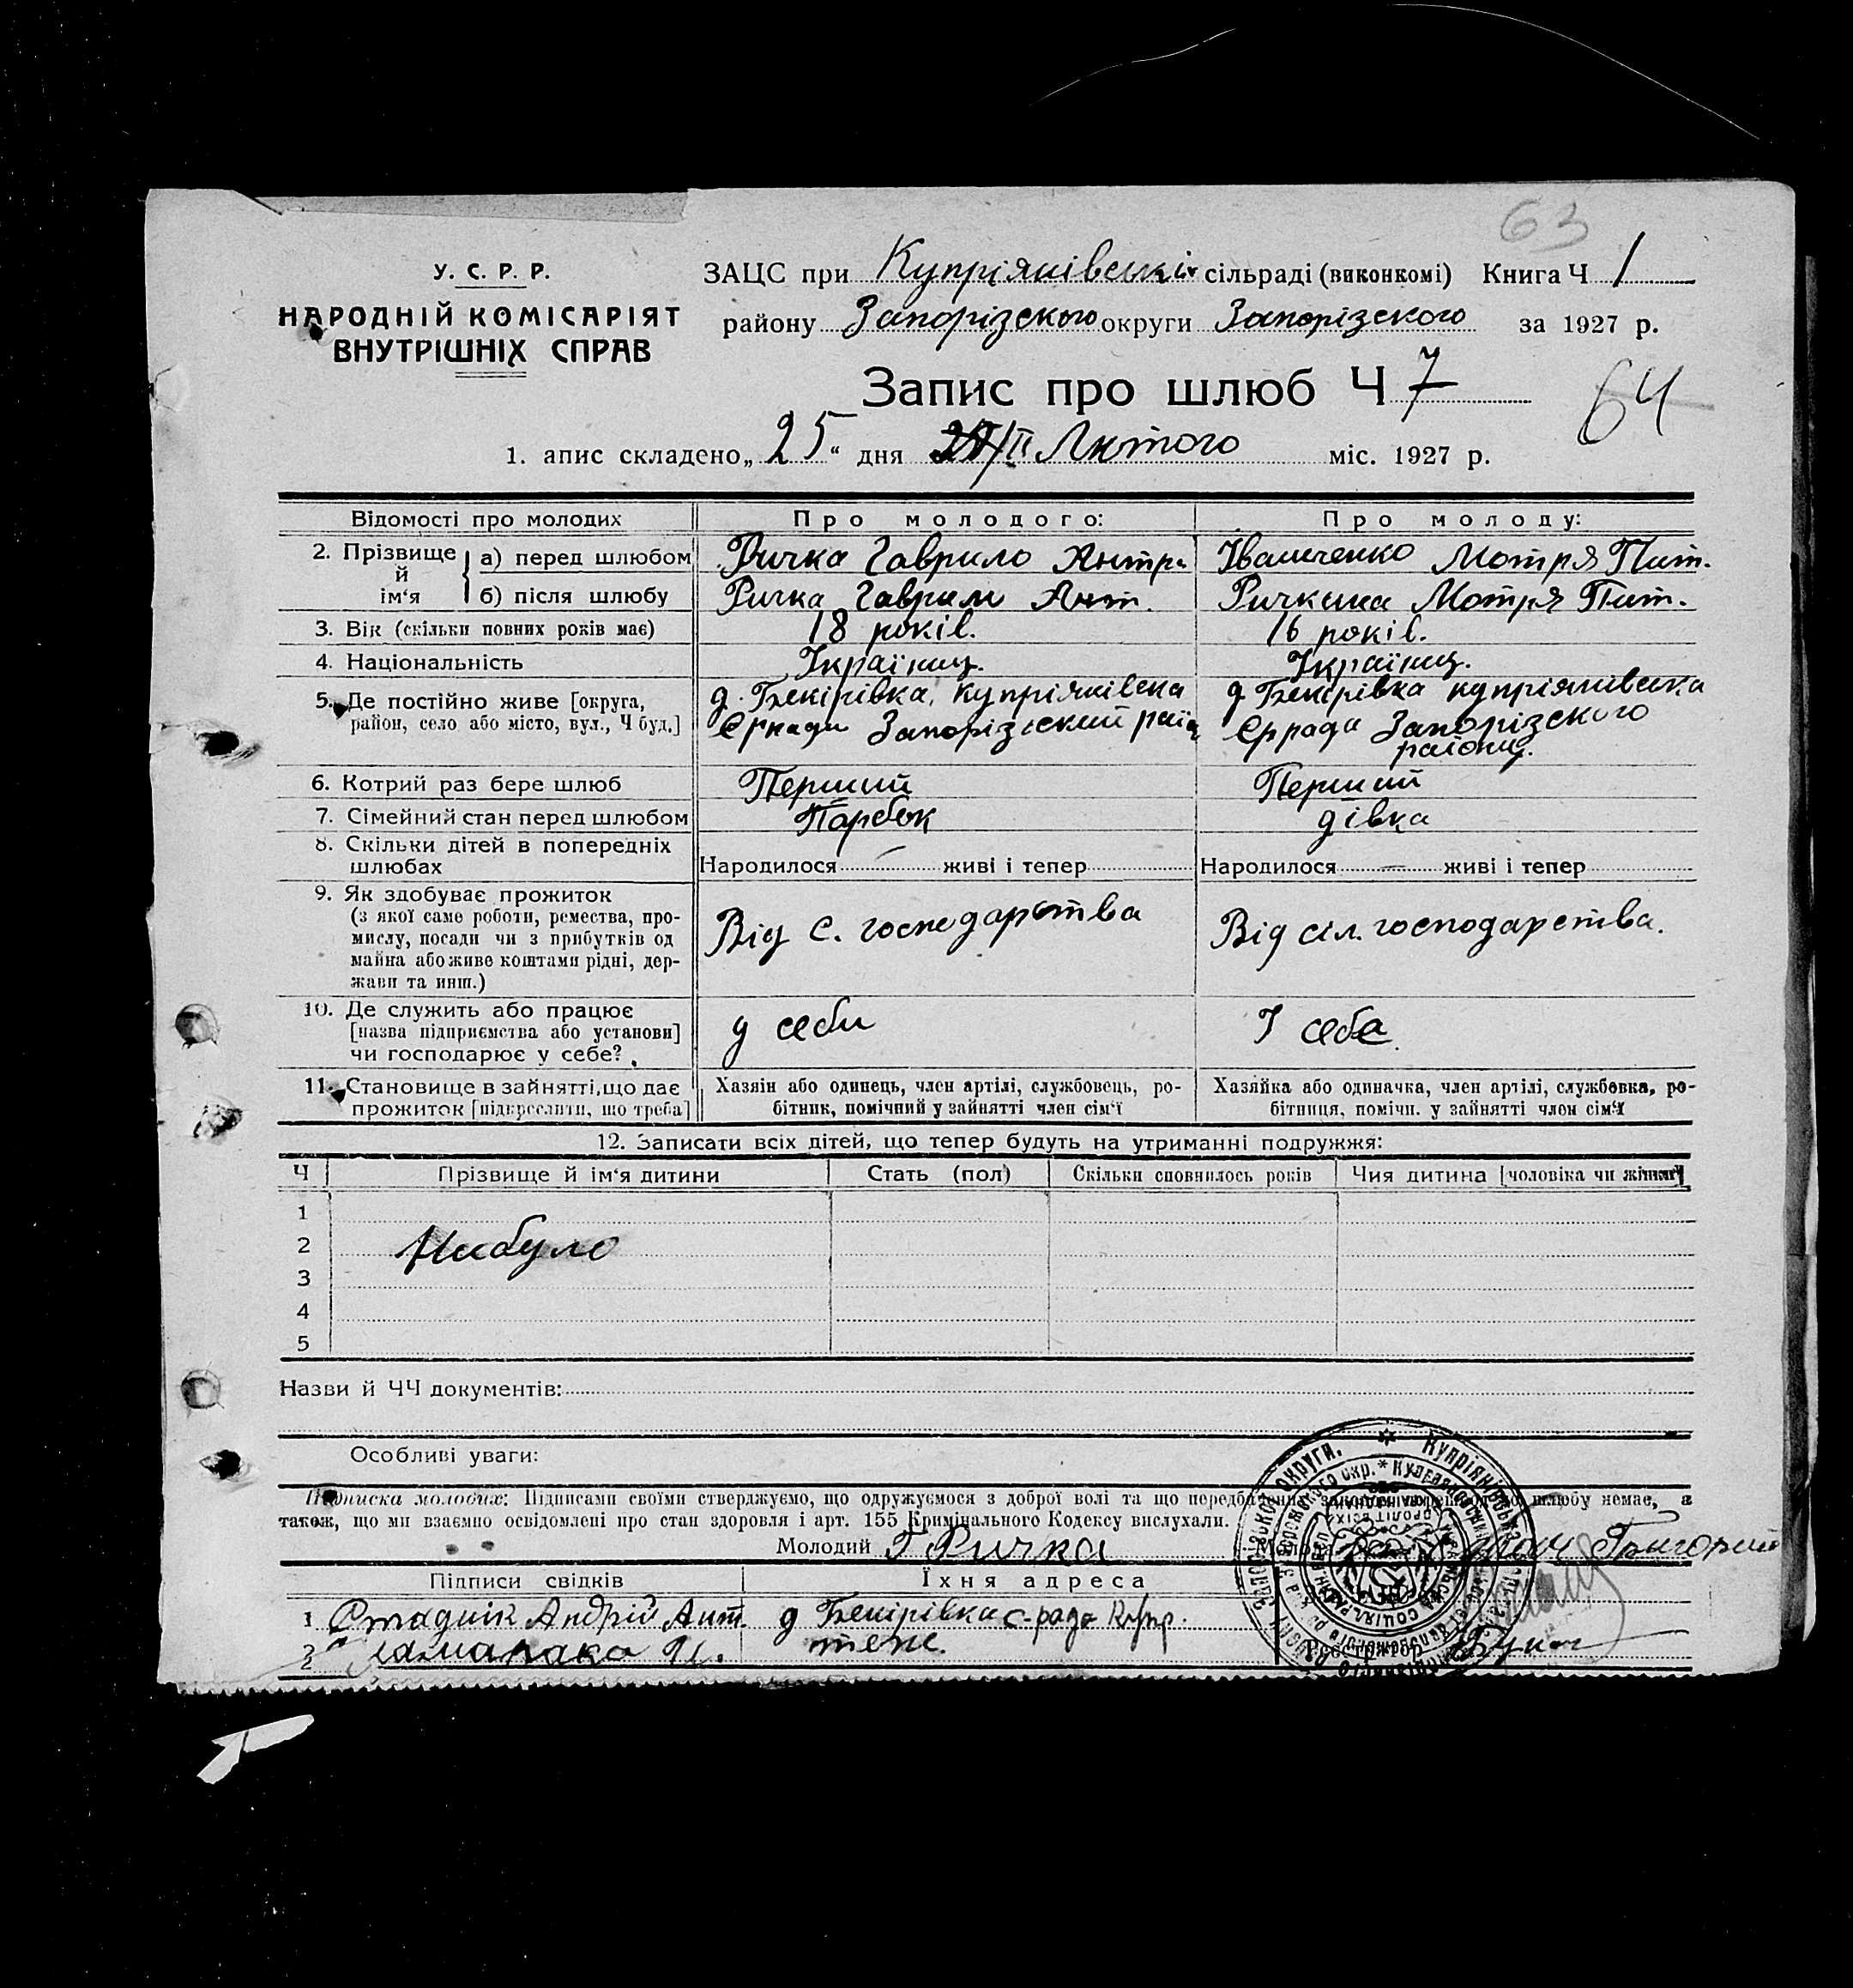 63
У. С. Р. Р.
НАРОДНІЙ КОМІСАРІЯТ
ВНУТРІШНІХ СПРАВ
ЗАЦС при Купріянівські сільраді (виконкомі) Книга Ч 1
району Запорізского округи Запорізского за 1927 р.
Запис про шлюб Ч 7
64
1. апис складено „ 25 “ дня /II Лютого міс. 1927 р.
Відомості про молодих Про молодого: Про молоду:
2. Прізвище й ім‘я
а) перед шлюбом Ричка Гаврило Мотря Пит.
б) після шлюбу Ричка Гаврило Ант. Мотря Пит.
3. Вік (скільки повних років має) 18 років. 16 років.
4. Національність Україниц. Україниц.
5. Де постійно живе [округа, д. Бекірівка, купріянівска д Бекірівка купріянівська
район, село або місто, вул., Ч буд.] Запорізьский Єррада Запорізского
району.
6. Котрий раз бере шлюб Перший Перший
7. Сімейний стан перед шлюбом Парбок дівка
8. Скільки дітей в попередніх
шлюбах Народилося живі і тепер Народилося живі і тепер
9. Як здобуває прожиток
(з якої саме роботи, ремества, про-
мислу, посади чи з прибутків од Від С. господарства Від сіл. господарства.
майна або живе коштами рідні, дер-
жави та инш.)
10. Де служить або працює
[назва підприємства або установи] у себи У себе.
чи господарює у себе?
11. Становище в зайнятті, що дає Хазяїн або одинець, член артілі, службовець, ро- Хазяйка або одиначка, член артілі, службовка, ро-
прожиток [підкреслити, що треба] бітник, помічний у зайнятті член сім‘ї бітниця, помічн. у зайнятті член сім‘ї
12. Записати всіх дітей, що тепер будуть на утриманні подружжя:
Ч Прізвище й ім‘я дитини Стать (пол) Скільки сповнилось років Чия дитина [чоловіка чи жінки]
1
2 Небуло
3
4
5
Назви й ЧЧ документів:
Особливі уваги:
Підписка молодих: Підписами своїми стверджуємо, що одружуємося з доброї волі та що передбачених законом перешкод до шлюбу немає, а
також, що ми взаємно освідомлені про стан здоровля і арт. 155 Кримінального Кодексу вислухали.
Молодий Г Ричка Григорий
Підписи свідків Їхня адреса
1 Стаднік Андрій Ант. д Бекірівка с-рада Купр.
2 теж. Реєстратор